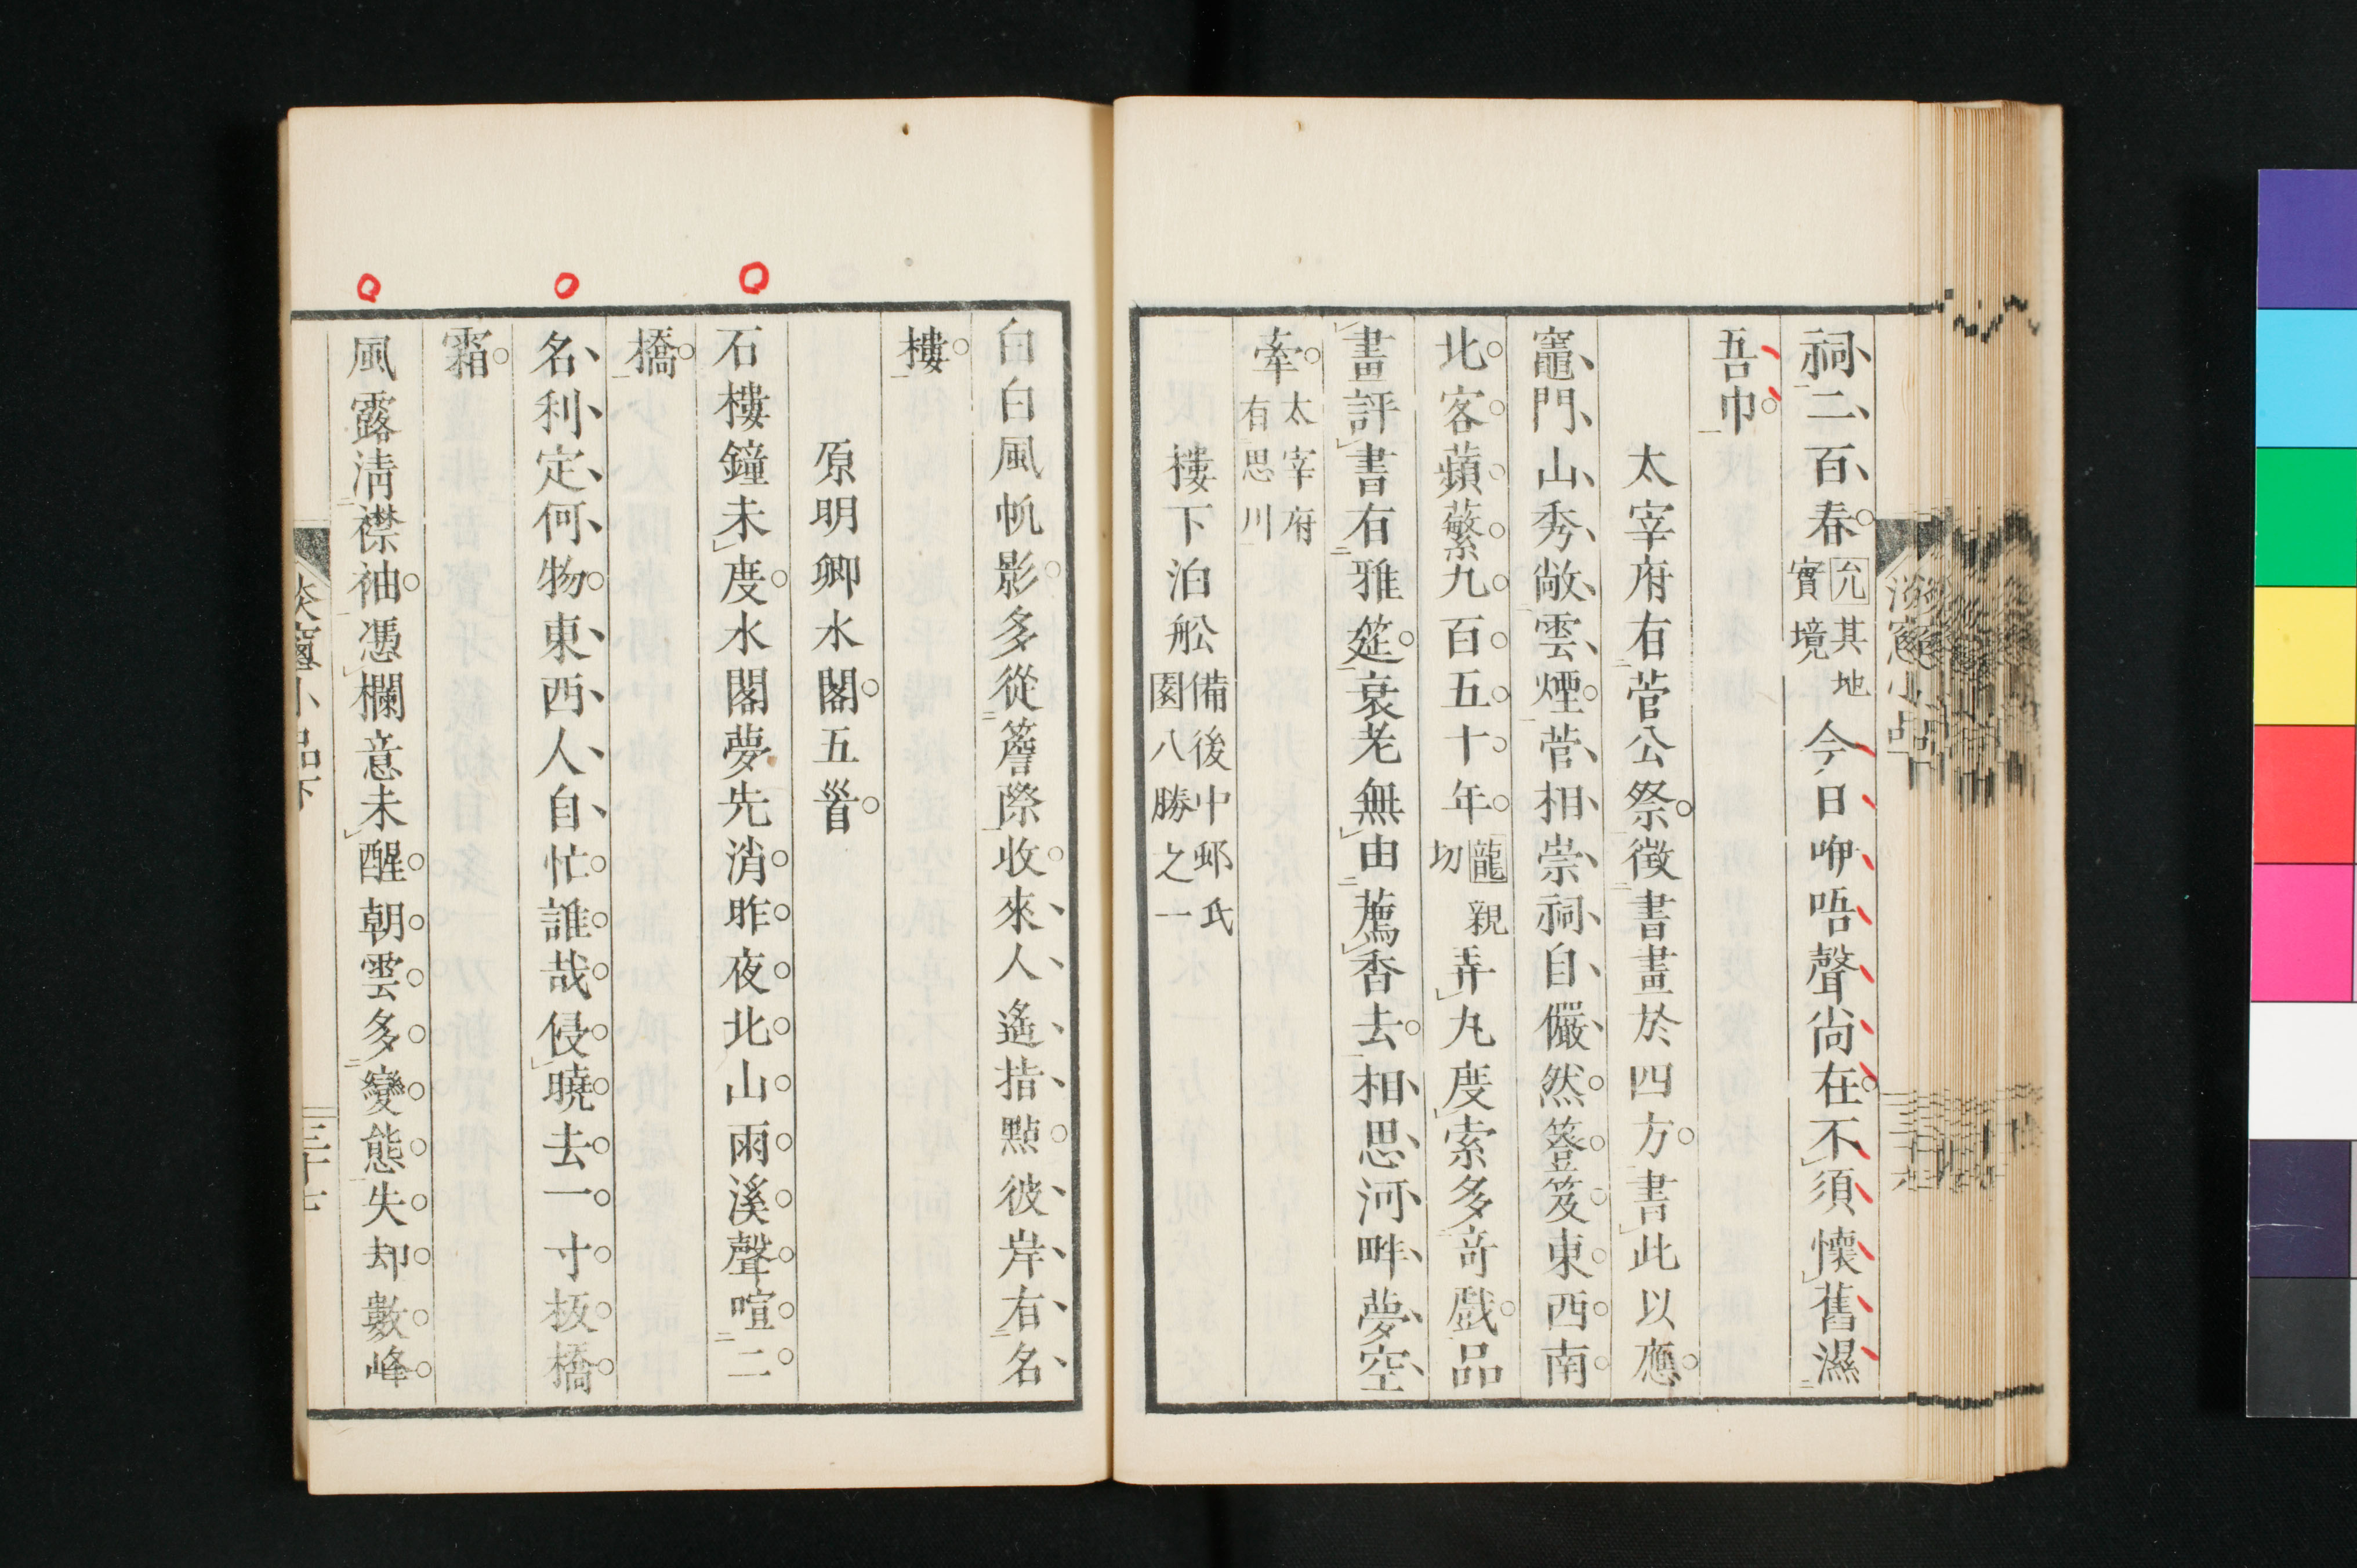 祠二百春允其地實境今日咿唔聲尚在不須懷舊濕
吾巾
太宰府有菅公祭徵書畫於四方書此以應
竈門山秀敞雲煙菅相崇祠自儼然簦笈東西南
北客蘋蘩九百五十年龍親切弄丸度索多奇戲品
畫評書有雅筵衰老無由薦香去相思河畔夢空
牽太宰府有思川
樓下泊舩備後中邨氏園八勝之一
白白風帆影多從簷際收來人遙指點彼岸有名
樓
原明卿水閣五首
石樓鐘未度水閣夢先消昨夜北山雨溪聲喧二
橋
名利定何物東西人自忙誰哉侵曉去一寸板橋
霜
風露淸襟袖憑欄意未醒朝雲多變態失却數峰
小品下
三十七